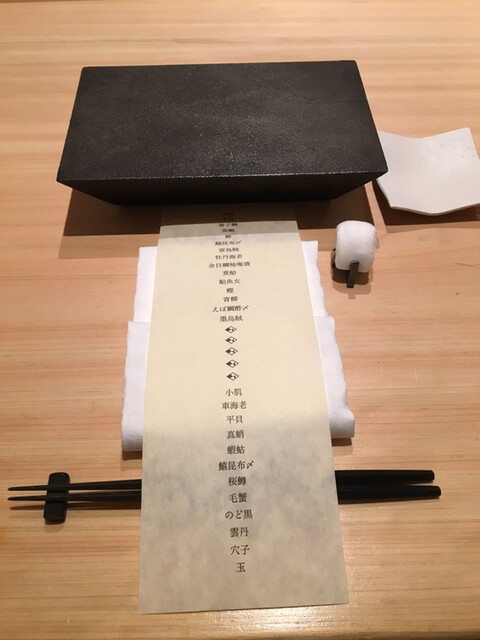 鱚昆布〆
蛍烏賊
牡丹海老
金目鯛柚庵漬
煮蛤
鮎魚女
鰹
青柳
えぼ鯛酢〆
墨烏賊
小肌
車海老
平貝
真蛸
蝦蛄
鱚昆布〆
桜鱒
毛蟹
のど黒
雲丹
穴子
玉